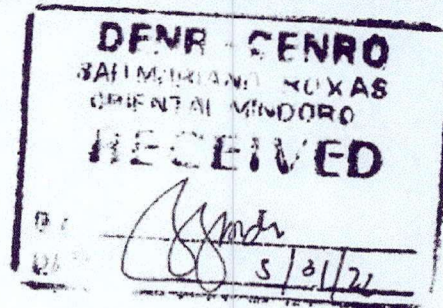 DENR - CENRO
SAN MARIANO ROXAS
ORIENTAL MINDORO
RECEIVED
5/31/22